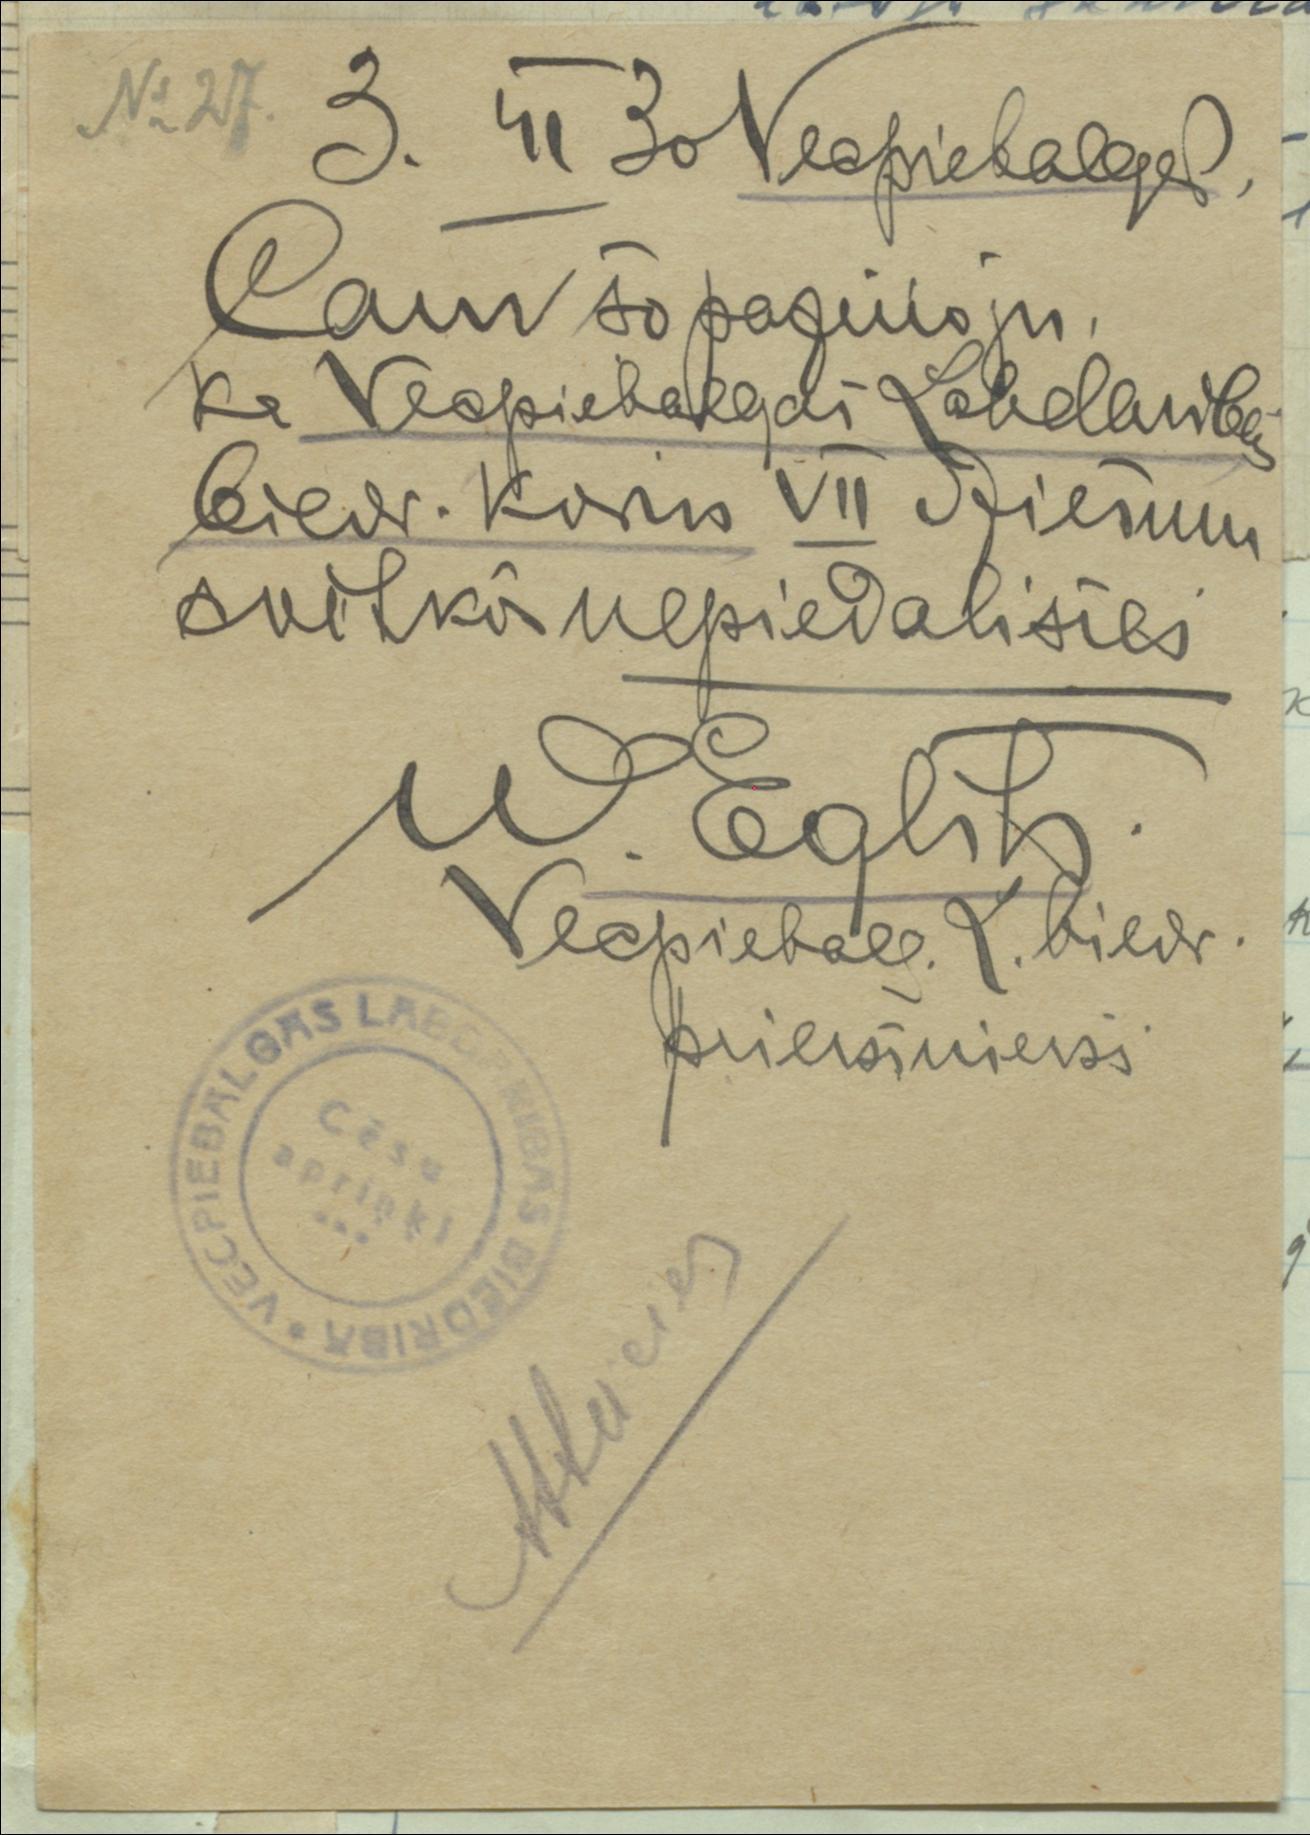 № 27.
3. III 30 Vecpiebalgā,
Caur šo paziņoju,
ka Vecpiebalgas Labdarības
biedr. koris VII Dziesmu
svētkos nepiedalīsies
W. Eglīts.
Vecpiebalg. L. biedr.
priekšnieks
VECPIEBALGAS LABDARIBAS BIEDRIBA
Cēsu
apriņķī